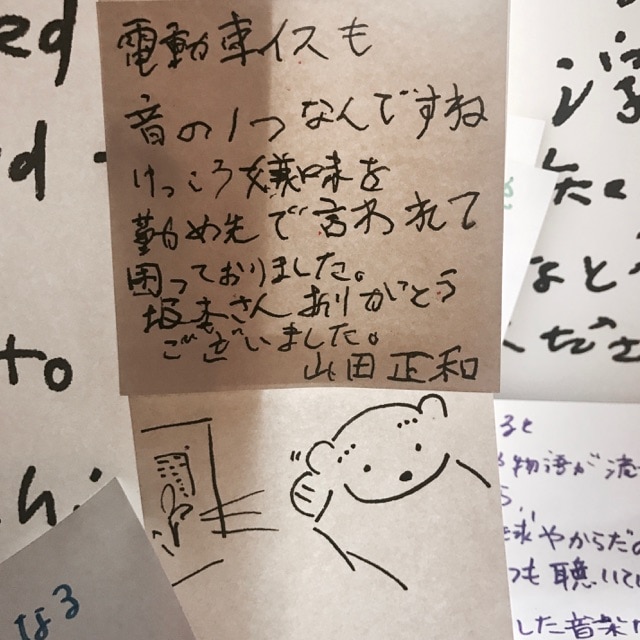 電動車イスも
音の1つなんですね
けっこう嫌味を
勤め先で言われて
困っておりました。
坂本さんありがとう
ございました。
山田正和
ed
to
なる
ると
物語が流
球やからだの
も聴いて
した音楽